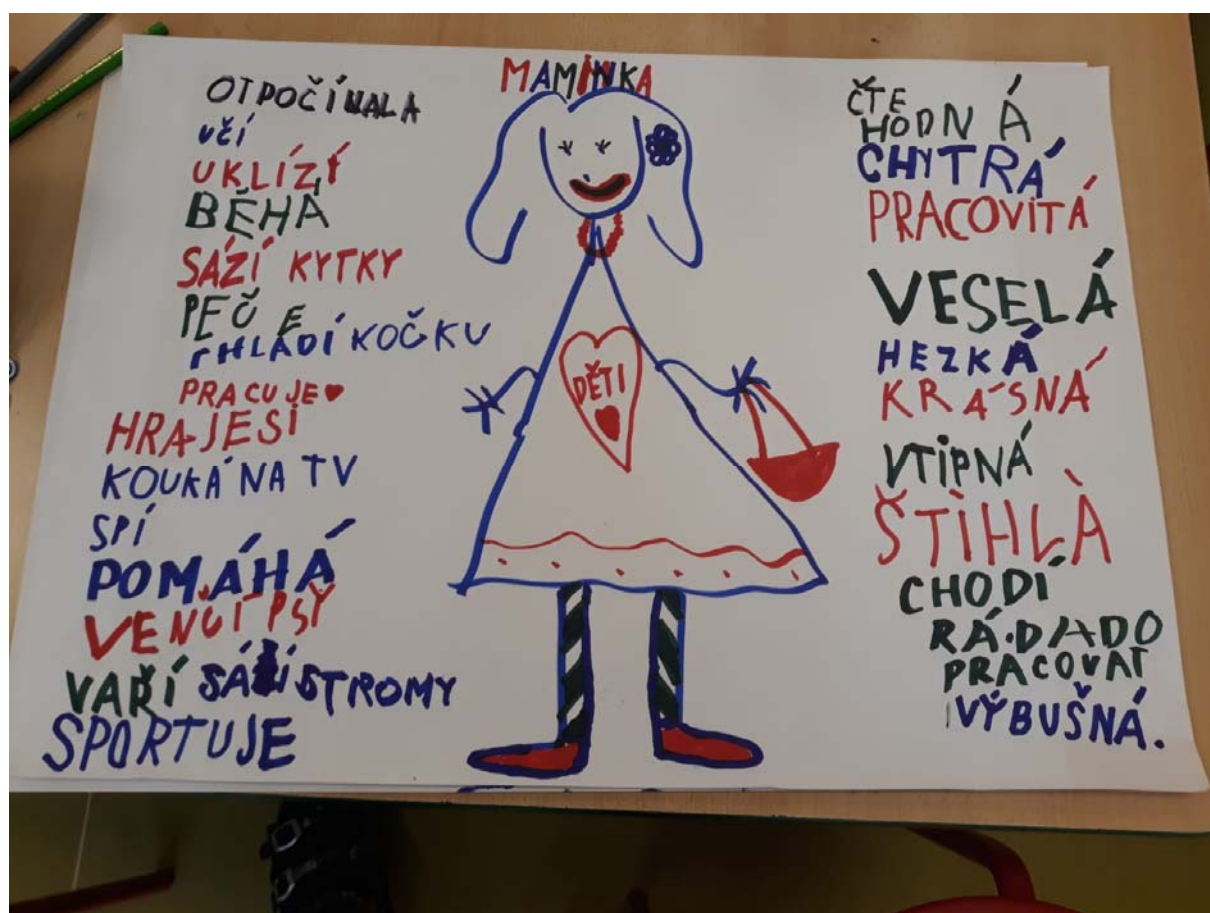 MAMINKA
OTPOČÍNALA
UČÍ
UKLÍZÍ
BĚHÁ
SÁZÍ KYTKY
PEČE
HLÁDÍ KOČKU
PRACUJE
HRAJESI
KOUKÁ NA TV
SPÍ
POMÁHÁ
VENČÍ PSY
VAŘÍ SÁZÍ STROMY
SPORTUJE
DĚTI
ČTE
HODNÁ
CHYTRÁ
PRACOVITÁ
VESELÁ
HEZKÁ
KRÁSNÁ
VTIPNÁ
ŠTÌHLÀ
CHODÍ
RÁDA DO
PRACOVAT
VÝBUŠNÁ.